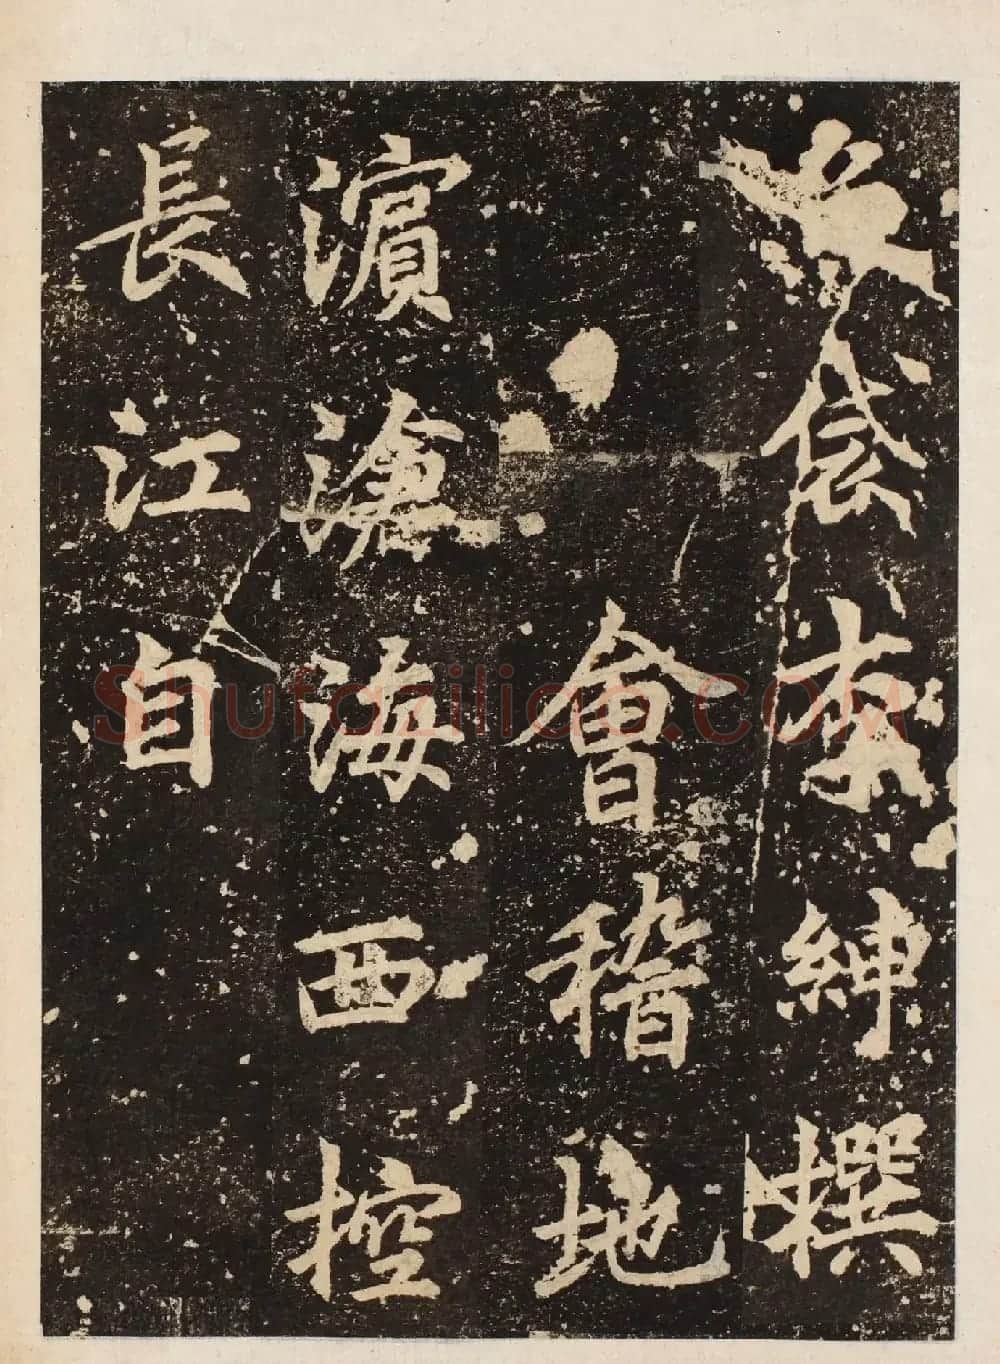 李紳撰
會稽地
濱滄海西控
長江自
Shufaziliao.COM